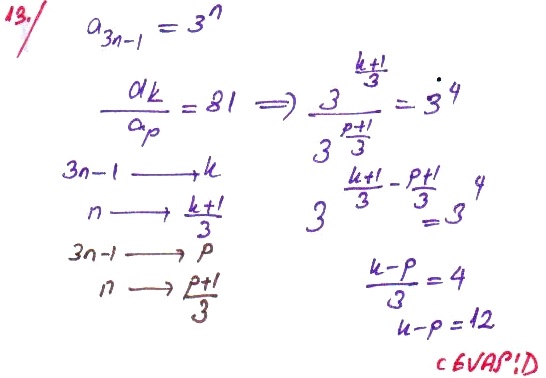 13./
a_{3n-1} = 3^n
\frac{a_k}{a_p} = 81 ⟹ \frac{3^{\frac{k+1}{3}}}{3^{\frac{p+1}{3}}} = 3^4
3n-1 ⟶ k
n ⟶ \frac{k+1}{3}
3n-1 ⟶ p
n ⟶ \frac{p+1}{3}
3^{\frac{k+1}{3} - \frac{p+1}{3}} = 3^4
\frac{k-p}{3} = 4
k-p = 12
CEVAP!D